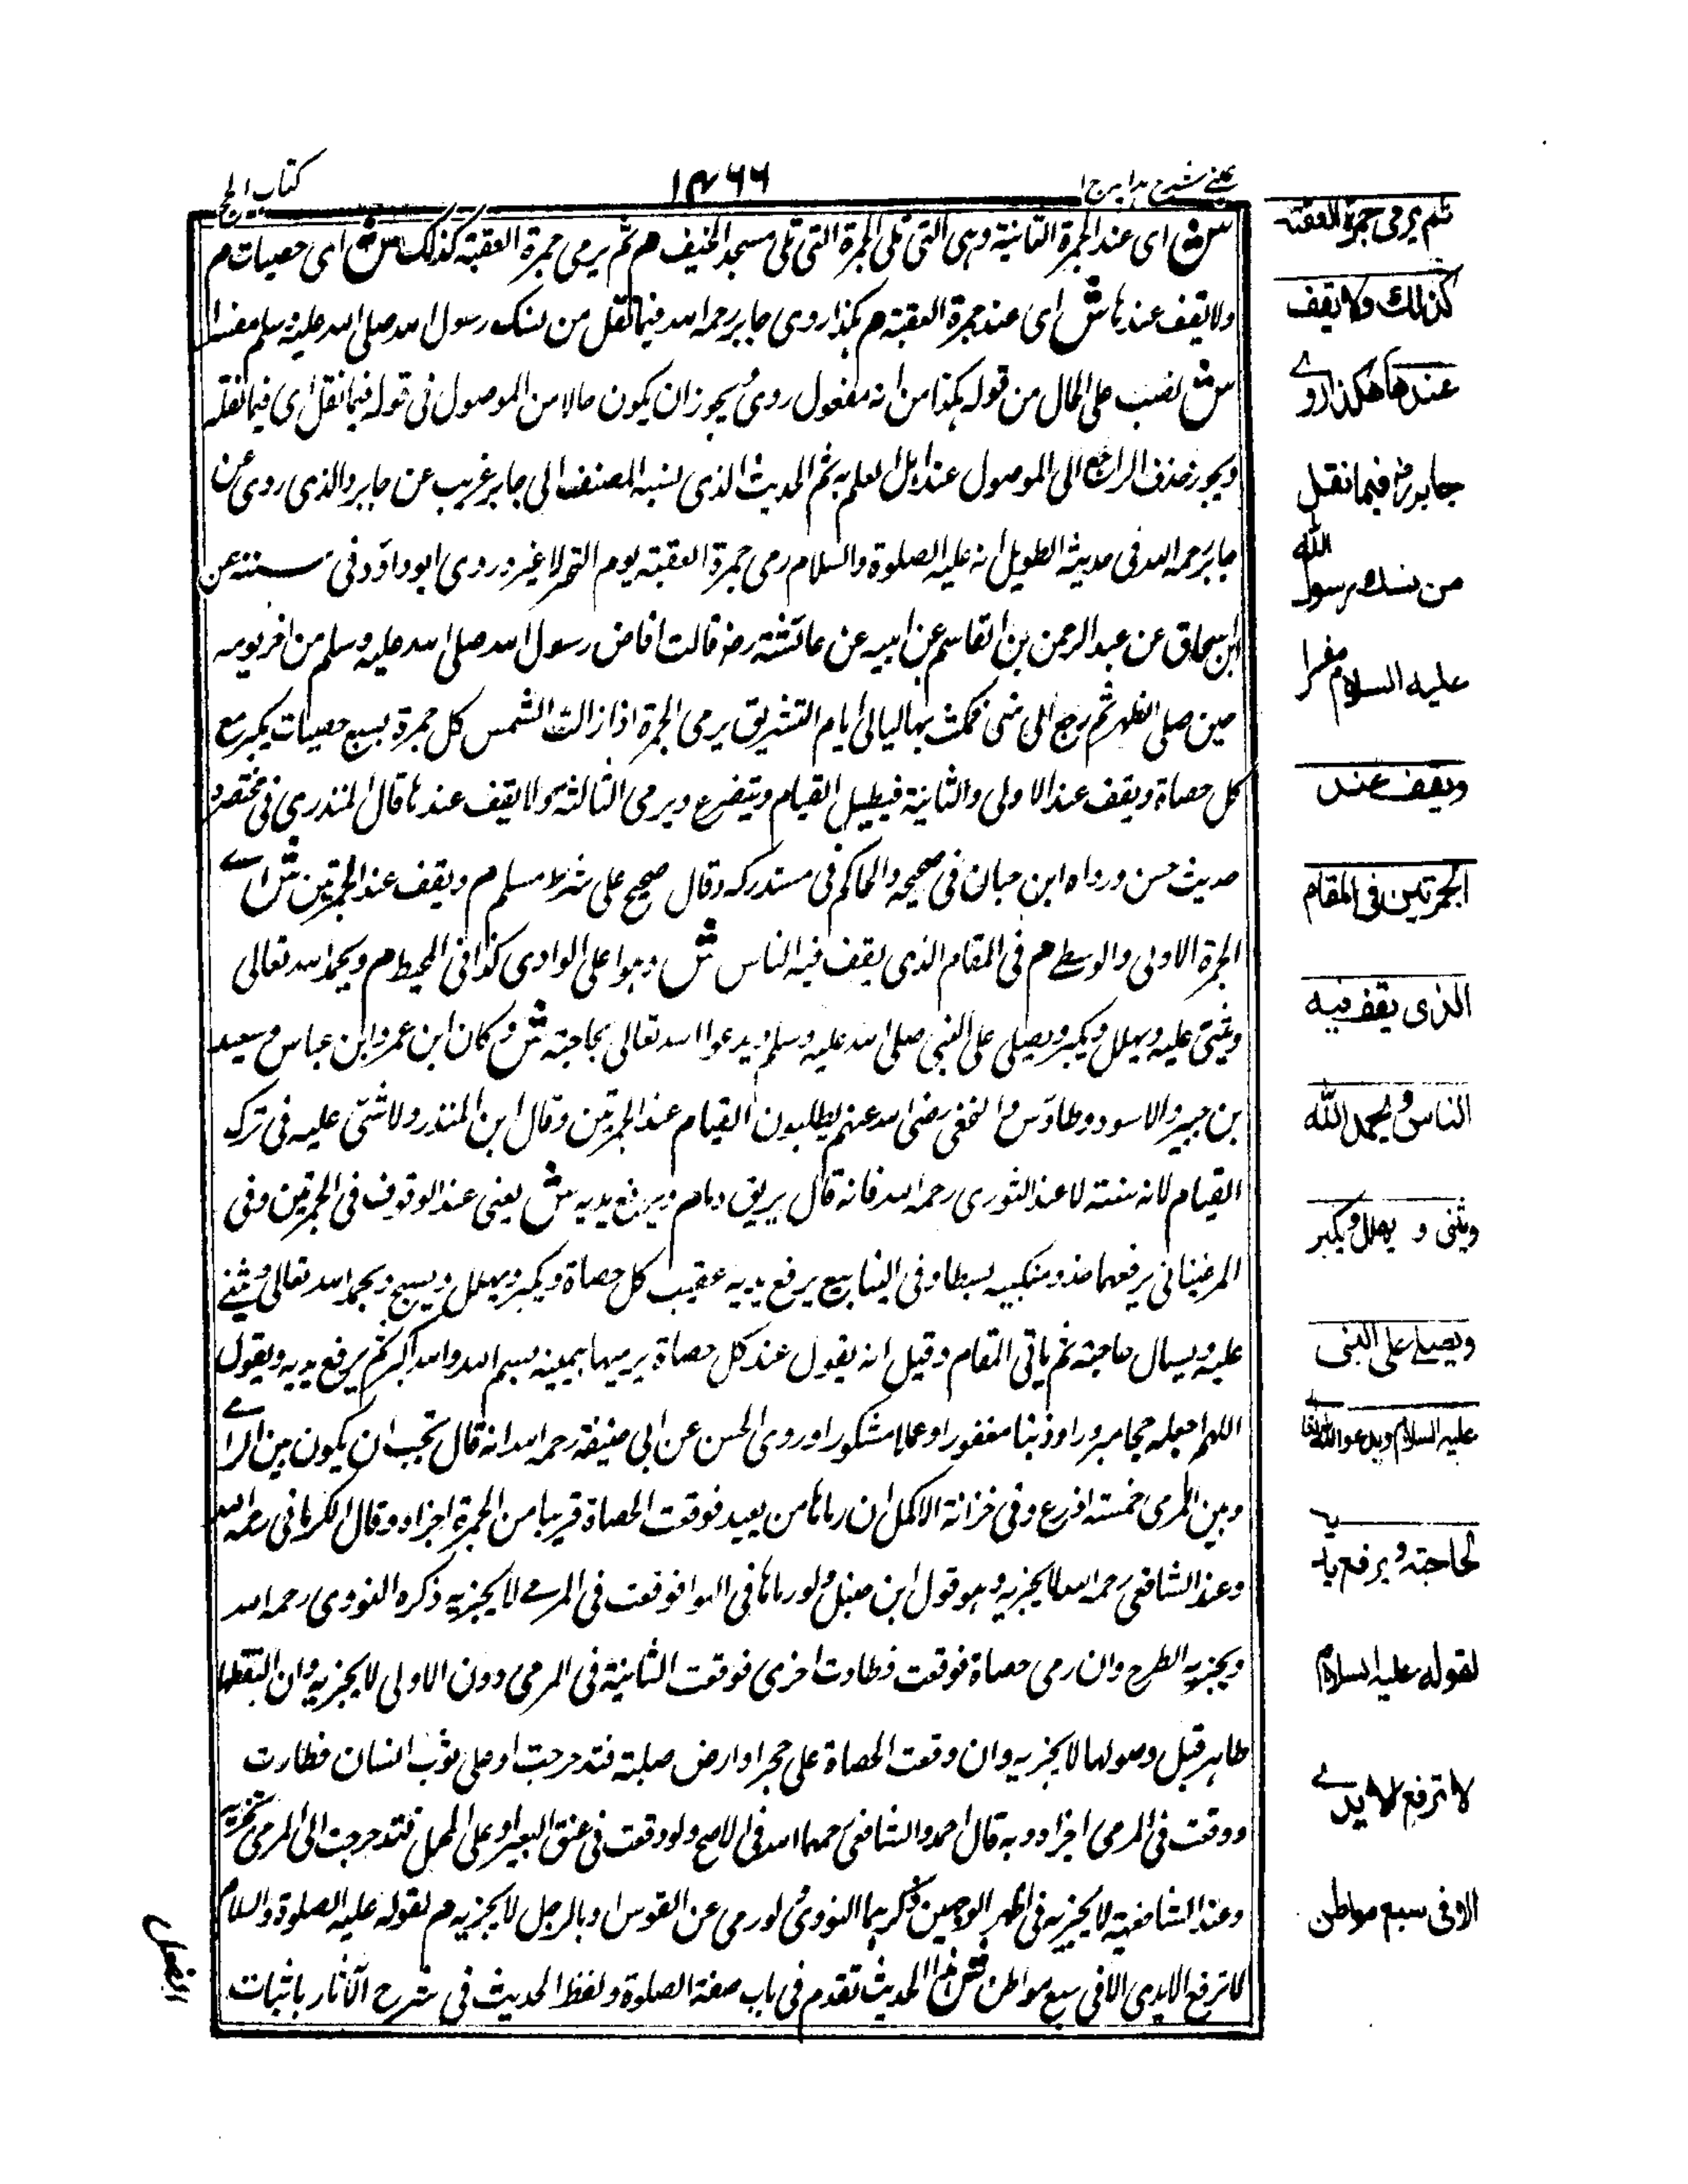 عینی شرح ہدایہ ج ا
١٣٦٦
کتاب الحج
ش ای عند الجمرة الثانیة وہی التی تلی الجمرة التی تلی مسجد الخیف م ثم یرمی جمرة العقبة کذلک ش ای حصیات م
ولا یقف عندہا ش ای عند جمرة العقبة م ہکذا روی جابر رحمہ اللہ فیما نقل من نسک رسول اللہ صلی اللہ علیہ وسلم مفسرا
ش نصب علی الحال من قولہ ہکذا من انہ مفعول روی ویجوز ان یکون حالا من الموصول فی قولہ فیما نقل ای فیما نقلہ
ویجوز حذف الراجع الی الموصول عند اہل العلم بہ ثم الحدیث الذی نسبہ المصنف الی جابر غریب عن جابر والذی روی عن
جابر رحمہ اللہ فی حدیثہ الطویل انہ علیہ الصلوة والسلام رمی جمرة العقبة یوم النحر لا غیر وروی ابو داؤد فی سننہ عن
ابن اسحاق عن عبد الرحمن بن القاسم عن ابیہ عن عائشة رضہ قالت افاض رسول اللہ صلی اللہ علیہ وسلم من اخر یومہ
حین صلی الظہر ثم رجع الی منی فمکث بہا لیالی ایام التشریق یرمی الجمرة اذا زالت الشمس کل جمرة بسبع حصیات یکبر مع
کل حصاة ویقف عند الاولی والثانیة فیطیل القیام ویتضرع ویرمی الثالثة ولا یقف عندہا قال المنذری فی مختصرہ
حدیث حسن ورواہ ابن حبان فی صحیحہ والحاکم فی مستدرکہ وقال صحیح علی شرط مسلم م ویقف عند الجمرتین ش اے
الجمرة الاولی والوسطے م فی المقام الذی یقف فیہ الناس ش وہو اعلی الوادی کذا فی المحیط م ویحمد اللہ تعالی
ویثنی علیہ ویہلل ویکبر ویصلی علی النبی صلی اللہ علیہ وسلم ویدعو اللہ تعالی بحاجتہ ش وکان ابن عمر وابن عباس وسعید
بن جبیر والاسود وطاؤس والنخعی رضی اللہ عنہم یطلبون القیام عند الجمرتین وقال ابن المنذر ولا شئ علیہ فی ترک
القیام لانہ سنتہ لا عند الثوری رحمہ اللہ فانہ قال یریق دما م ویرفع یدیہ ش یعنی عند الوقوف فی الجمرتین وفی
المرغینانی یرفعہما حذو منکبیہ بسطا وفی الینابیع یرفع یدیہ عقیب کل حصاة ویکبر ویہلل ویسبح ویحمد اللہ تعالی ویثنے
علیہ ویسال حاجتہ ثم یاتی المقام وقیل انہ یقول عند کل حصاة یرمیہا بیمینہ بسم اللہ واللہ اکبر ثم یرفع یدیہ ویقول
اللہم اجعلہ حجا مبرورا وذنبا مغفورا وعملا مشکورا وروی الحسن عن ابی حنیفة رحمہ اللہ انہ قال یستحب ان یکون بین الرامے
وبین المرمی خمستہ اذرع وفی خزانة الاکمل ان رماہا من بعید فوقعت الحصاة قریبا من الجمرة اجزاہ وقال الکرمانی رحمہ اللہ
وعند الشافعی رحمہ اللہ لا یجزیہ وہو قول ابن حنبل ولو رماہا فی الہوا فوقعت فی المرمے لا یجزیہ ذکرہ النووی رحمہ اللہ
ویجزیہ الطرح وان رمی حصاة فوقعت فطارت اخری فوقعت الثانیة فی المرمی دون الاولی لا یجزیہ وان التقطہا
طاہر قبل وصولہا لا یجزیہ وان وقعت الحصاة علی حجر او ارض صلبتہ فتدحرجت او علی ثوب انسان فطارت
ووقعت فی المرمی اجزاہ وبہ قال احمد والشافعی رحمہما اللہ فی الاصح ولو وقعت فی عنق البعیر او علی المحمل فتدحرجت الی المرمی یجزیہ
وعند الشافعیة لا یجزیہ فی اظہر الوجہین ذکرہما النووی لو رمی عن القوس او بالرجل لا یجزیہ م لقولہ علیہ الصلوة والسلام
لا ترفع الایدی الا فی سبع مواطن ش ہذا الحدیث تقدم فی باب صفة الصلوة ولفظ الحدیث فی شرح الآثار باثبات
ثم یرمی جمرة العقبة
کذلك ولا یقف
عندها هکذا روے
جابر رض فیما نقل
من نسك رسول الله
علیہ السلام مفسرا
ویقف عند
الجمرتین فی المقام
الذی یقف فیه
الناس ویحمد الله
ویثنی و یهلل ویکبر
ویصلے علی النبی
علیہ السلام ویدعو الله تعالے
لحاجته ویرفع یدیہ
لقوله علیہ السلام
لا ترفع الایدے
الا فی سبع مواطن